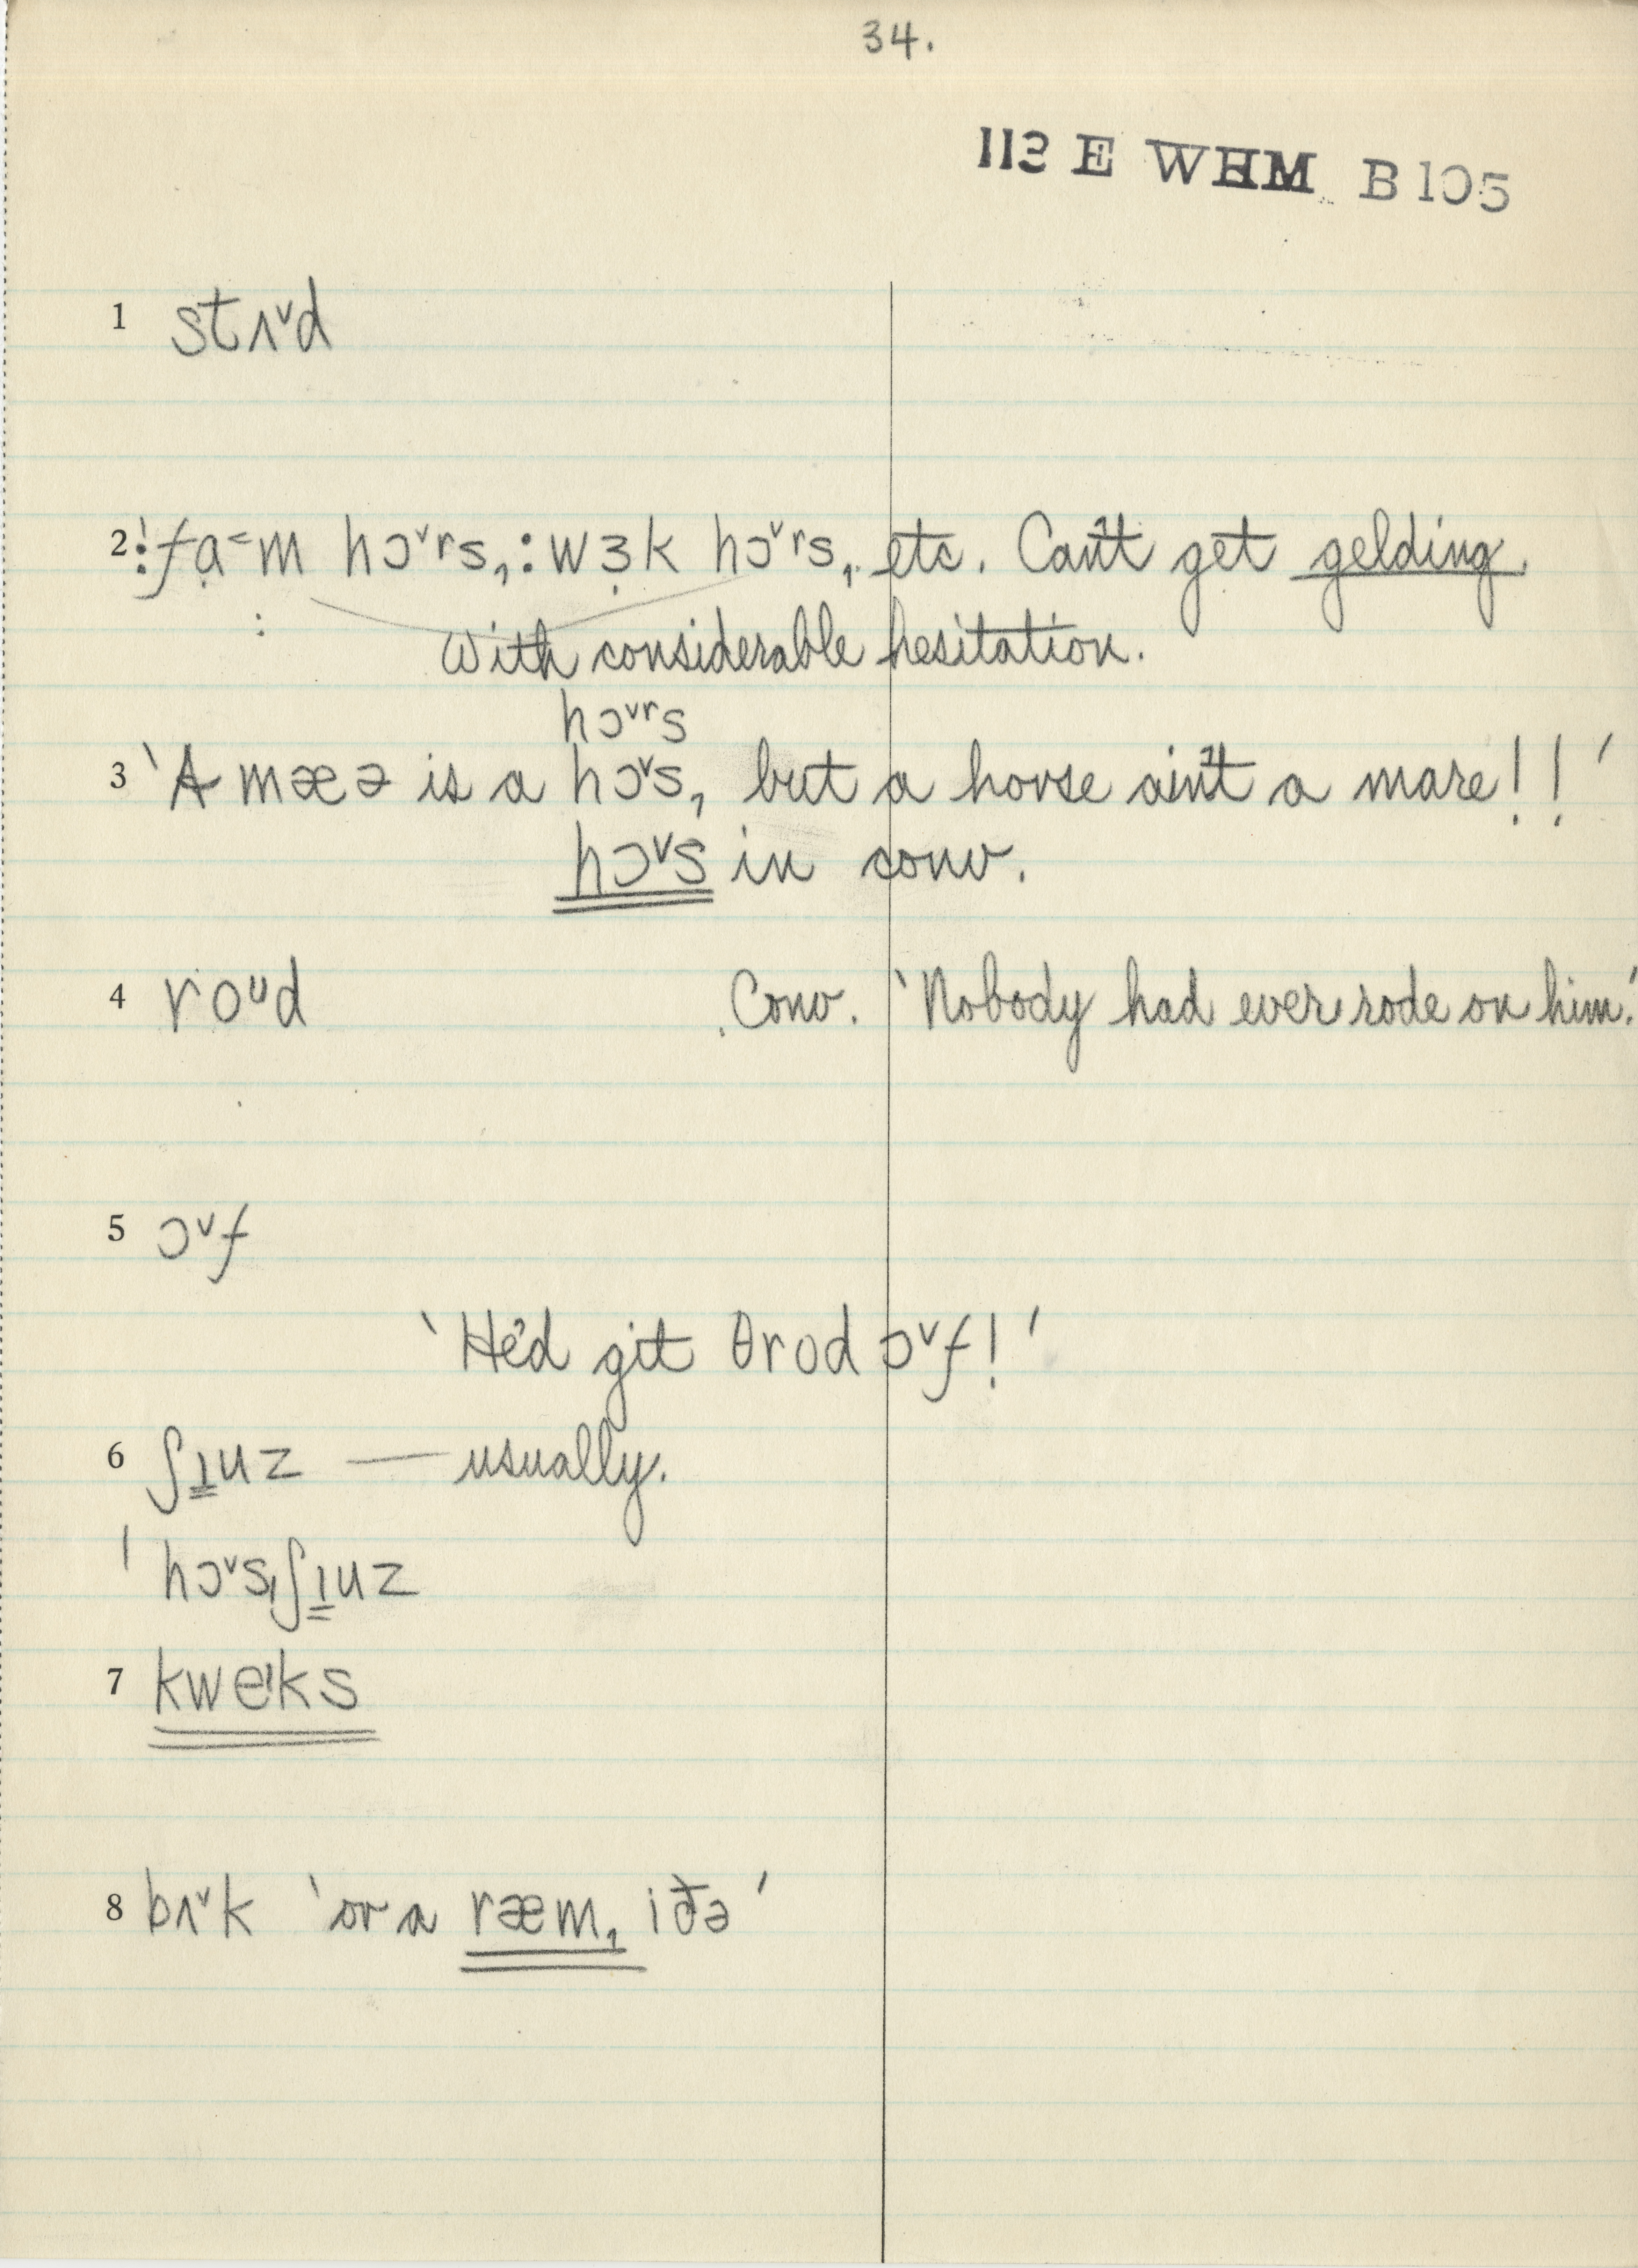 34.
113 E WHM B 105
1 stʌ˅d
2 :ˈfạ˂m hɔ˅rs, : wɜ̣k hɔ˅rs, etc. Can't get gelding.
: With considerable hesitation.
hɔ˅rs
3 'A mæə is a hɔ˅s, but a horse ain't a mare!!'
hɔ˅s in conv.
4 roᵘd .Conv. 'Nobody had ever rode on him.'
5 ɔ˅f
'He'd git θrod ɔ˅f!'
6 ʃɪ̳uz — usually.
ˈhɔ˅sˌʃɪ̳uz
7 kweᶦks
8 bʌ˅k 'or a ræm, iðə'